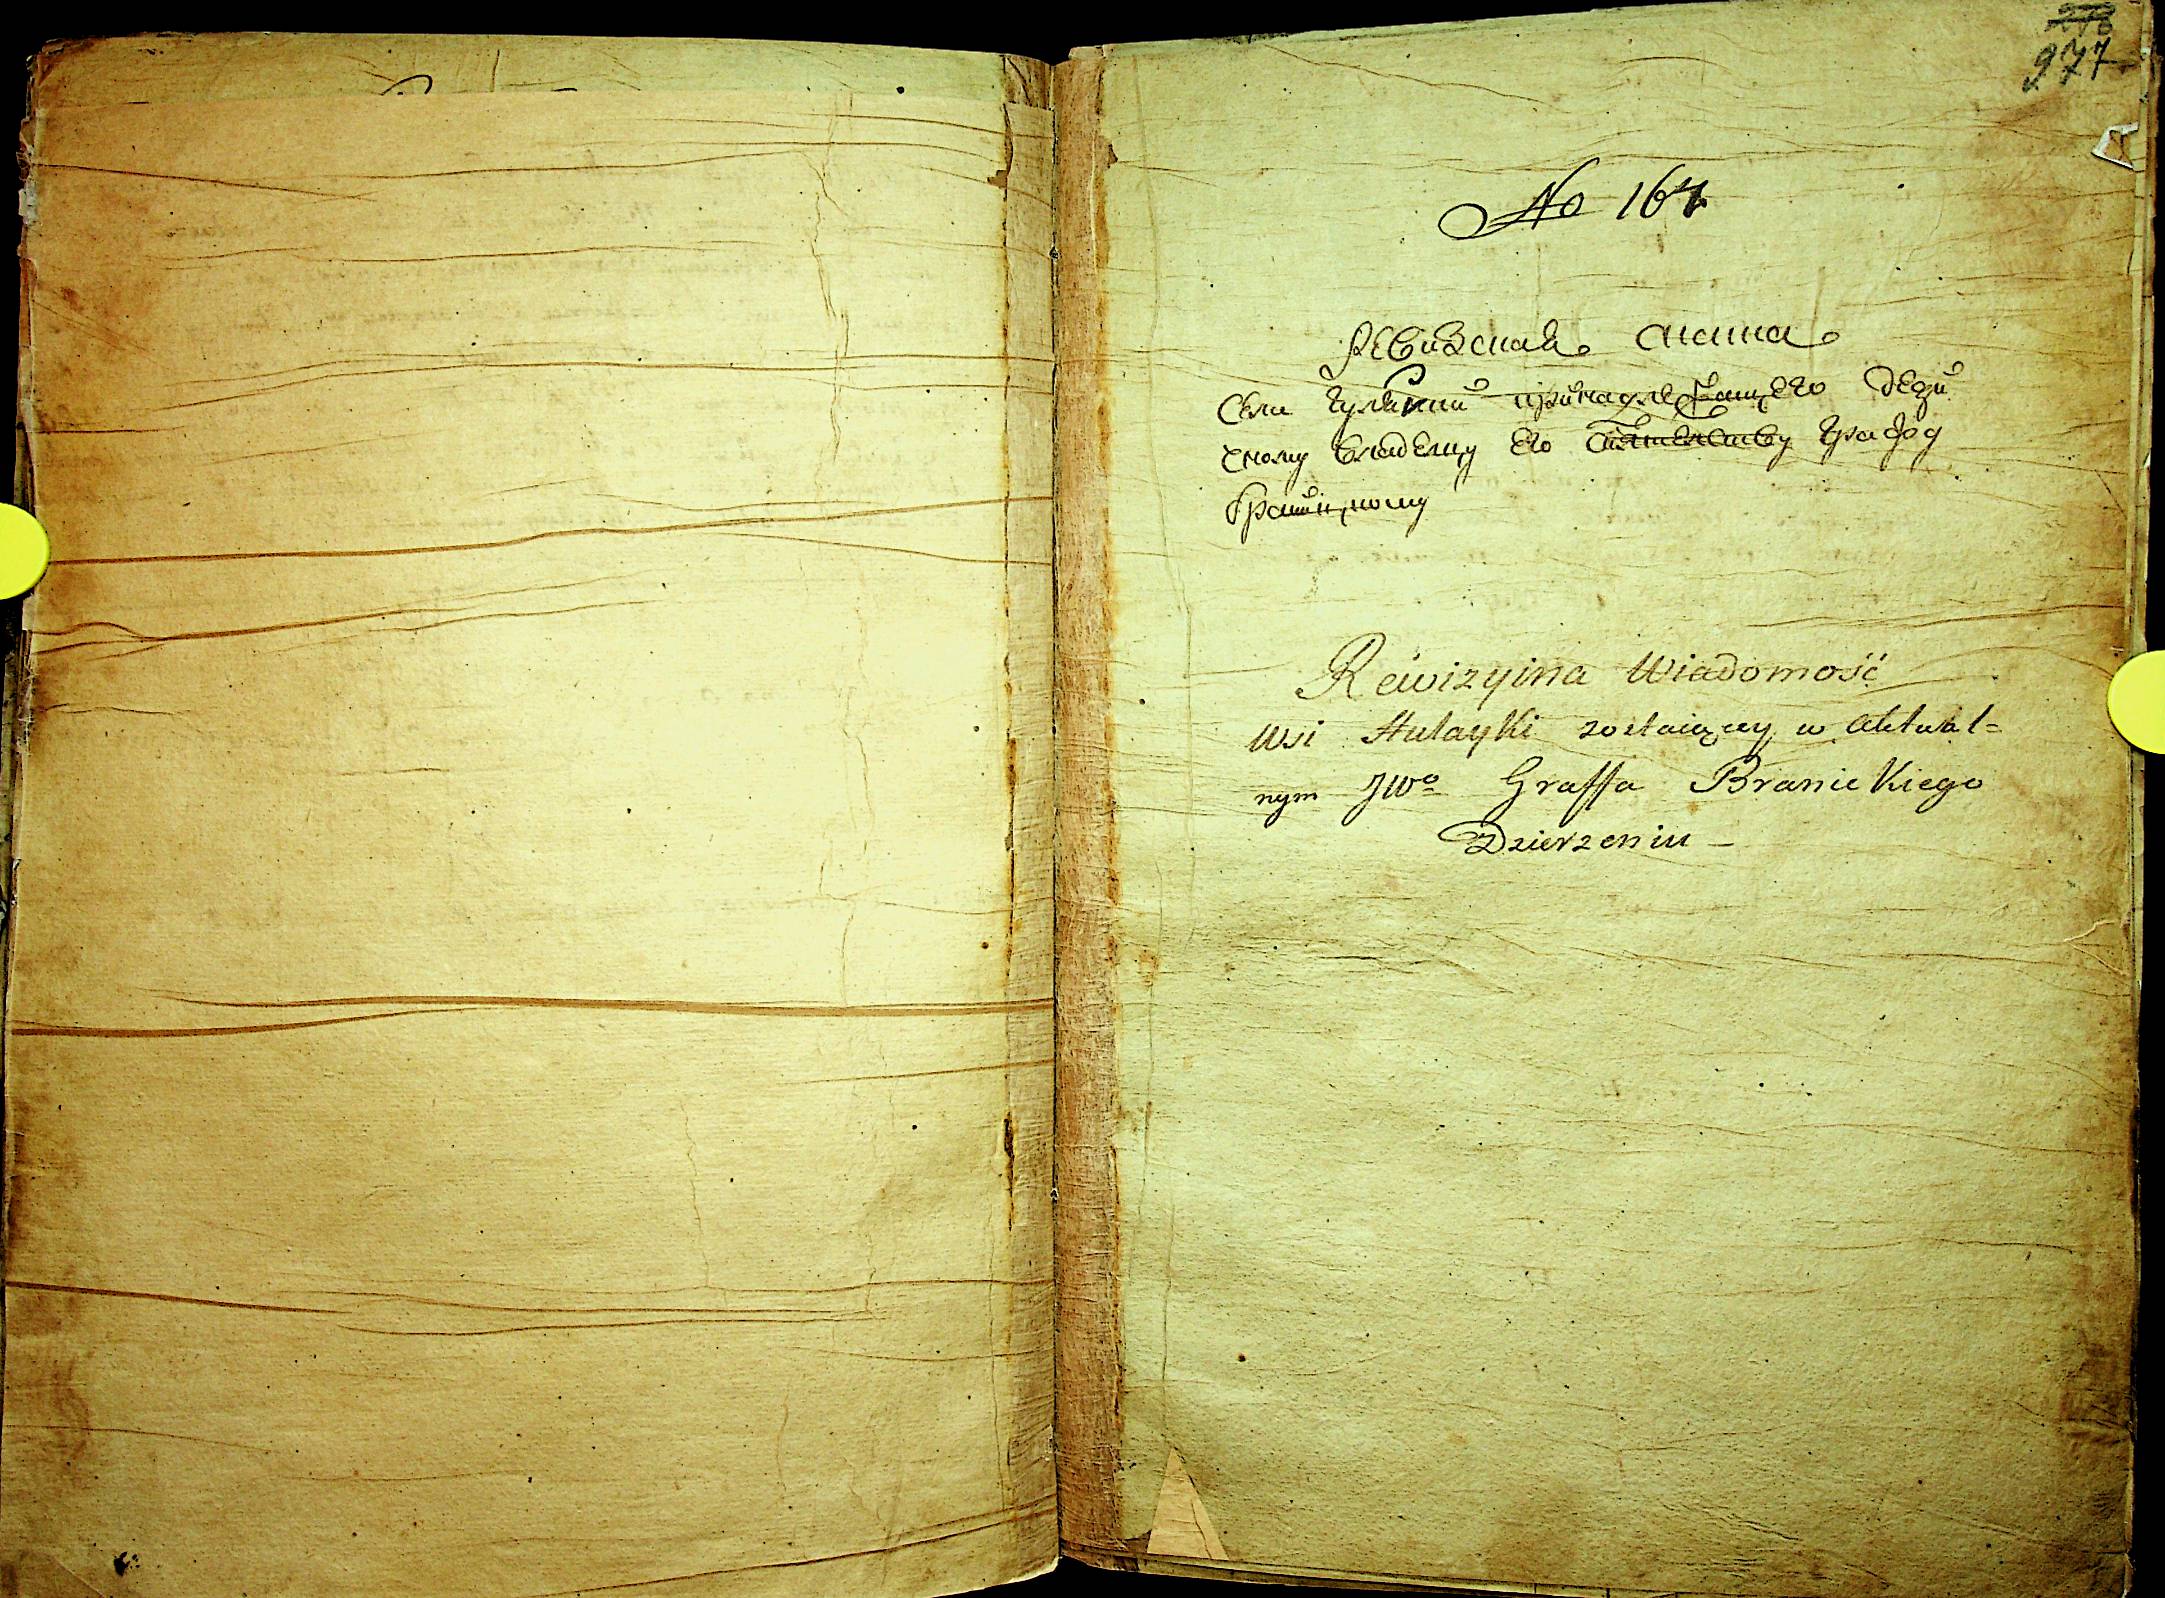 977
No 167
Ревизская сказка
Села Гулайки принадлежащего
владелцу Его графу
Браницкому
Rewizyina Wiadomość
Wsi Hulayki zostaiącey w Aktual=
nym JWo Graffa Branickiego
Dzierzeniu —